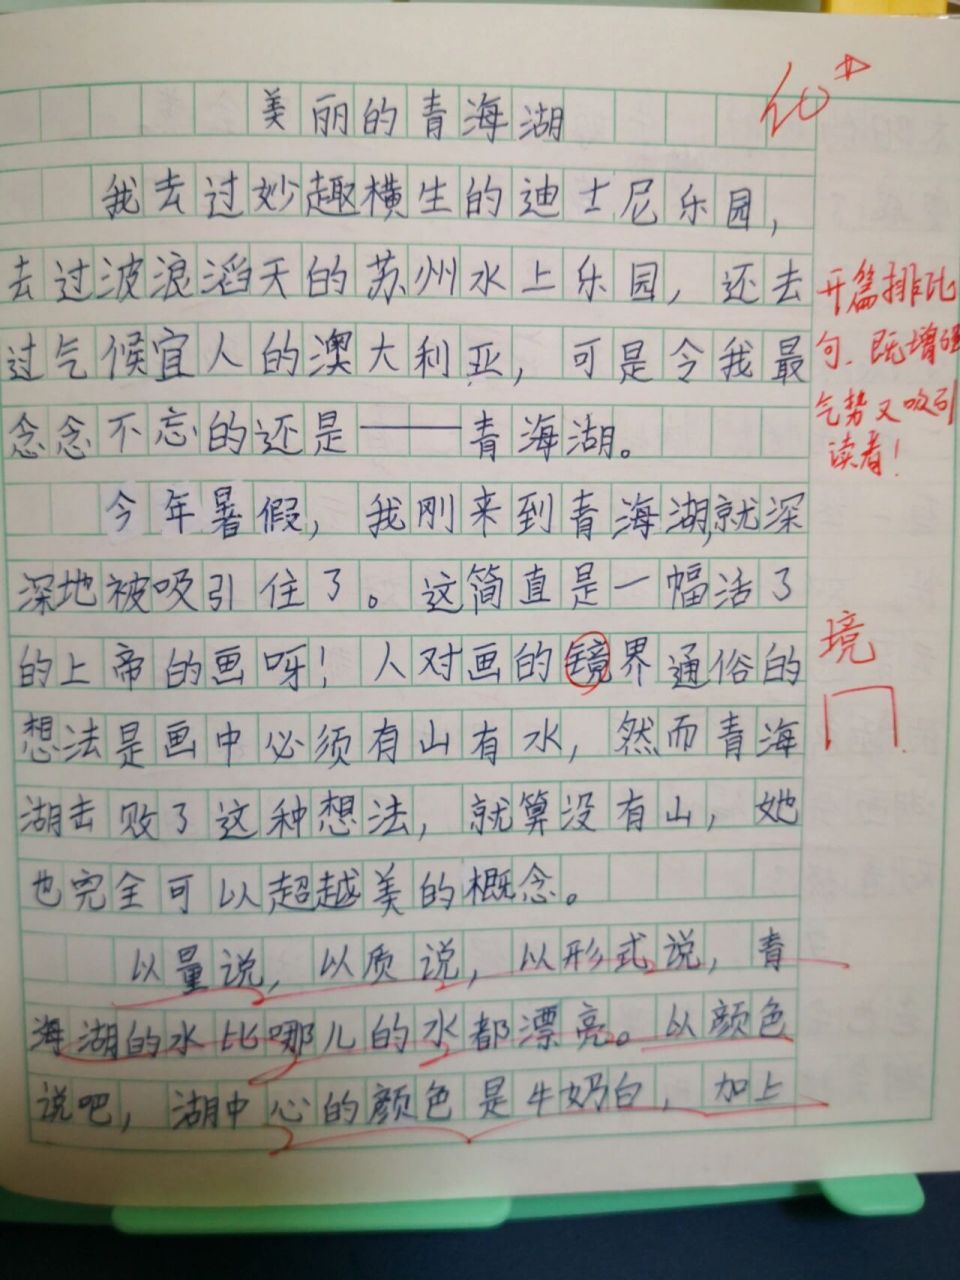 美丽的青海湖
我去过妙趣横生的迪士尼乐园，
去过波浪滔天的苏州水上乐园，还去
过气候宜人的澳大利亚，可是令我最
念念不忘的还是——青海湖。
今年暑假，我刚来到青海湖，就深
深地被吸引住了。这简直是一幅活了
的上帝的画呀！人对画的镜界通俗的
想法是画中必须有山有水，然而青海
湖击败了这种想法，就算没有山，她
也完全可以超越美的概念。
以量说，以质说，以形式说，青
海湖的水比哪儿的水都漂亮。以颜色
说吧，湖中心的颜色是牛奶白，加上
开篇排比
句，既增强
气势又吸引
读者！
境